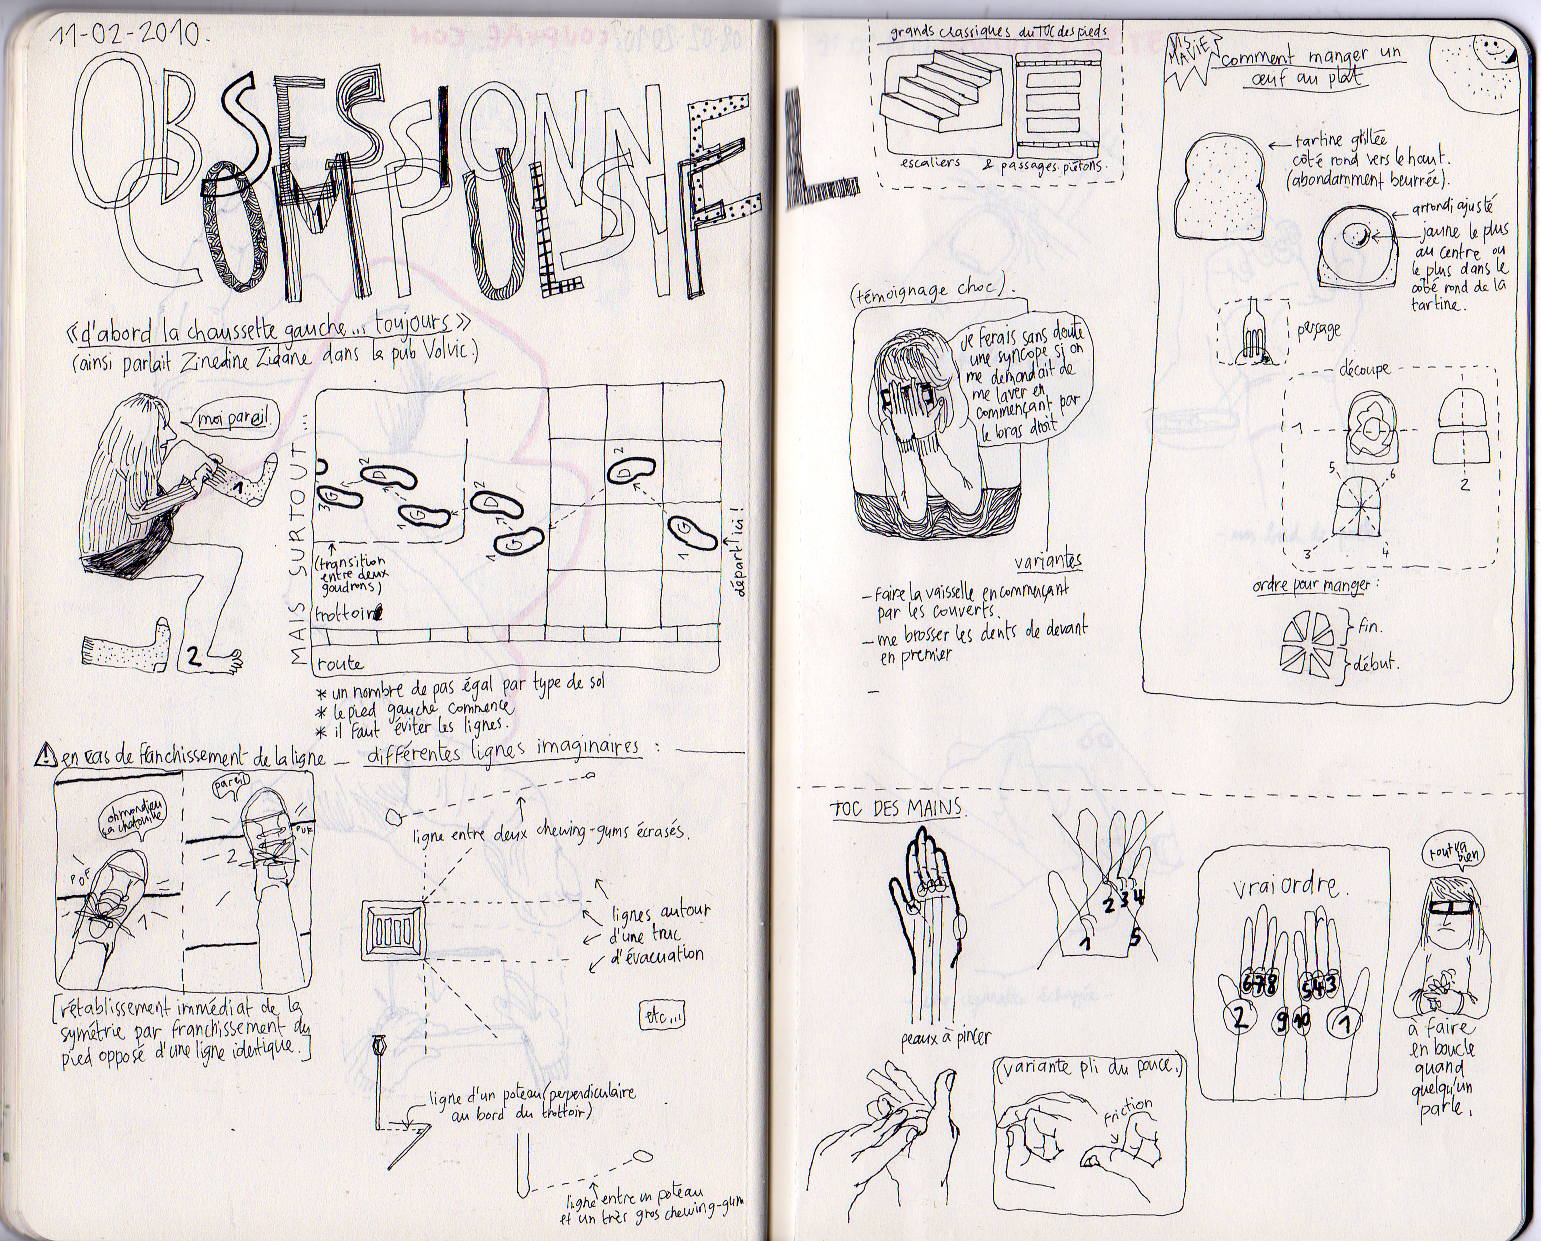 11-02-2010.
OBSESSIONNEL
COMPULSIF
«d'abord la chaussette gauche... toujours»
(ainsi parlait Zinedine Zidane dans la pub Volvic.)
moi pareil.
1
2
MAIS SURTOUT...
3
G
D
2
1
G
D
2
1
G
D
2
1
G
départ ici!
(transition
entre deux
goudrons)
trottoir
route
* un nombre de pas égal par type de sol
* le pied gauche commence
* il faut éviter les lignes.
⚠ en cas de franchissement de la ligne _
oh mon dieu
ça chatouille
POF
1
pareil
POF
2
[rétablissement immédiat de la
symétrie par franchissement du
pied opposé d'une ligne identique.]
différentes lignes imaginaires :
ligne entre deux chewing-gums écrasés.
lignes autour
d'une truc
d'évacuation
etc...
ligne d'un poteau (perpendiculaire
au bord du trottoir)
ligne entre un poteau
et un très gros chewing-gum
grands classiques du TOC des pieds
escaliers & passages piétons.
(témoignage choc).
je ferais sans doute
une syncope si on
me demandait de
me laver en
commençant par
le bras droit
variantes
- faire la vaisselle en commençant
par les couverts.
- me brosser les dents de devant
en premier
-
VIS
MA VIE
comment manger un
œuf au plat
tartine grillée
côté rond vers le haut.
(abondamment beurrée).
arrondi ajusté
jaune le plus
au centre ou
le plus dans le
côté rond de la
tartine.
perçage
découpe
1
2
5
6
3
4
ordre pour manger :
fin.
début.
TOC DES MAINS.
peaux à pincer
1
2 3 4
5
vrai ordre.
6 7 8
5 4 3
2
9 10
1
tout va
bien
à faire
en boucle
quand
quelqu'un
parle.
(variante pli du pouce.)
friction